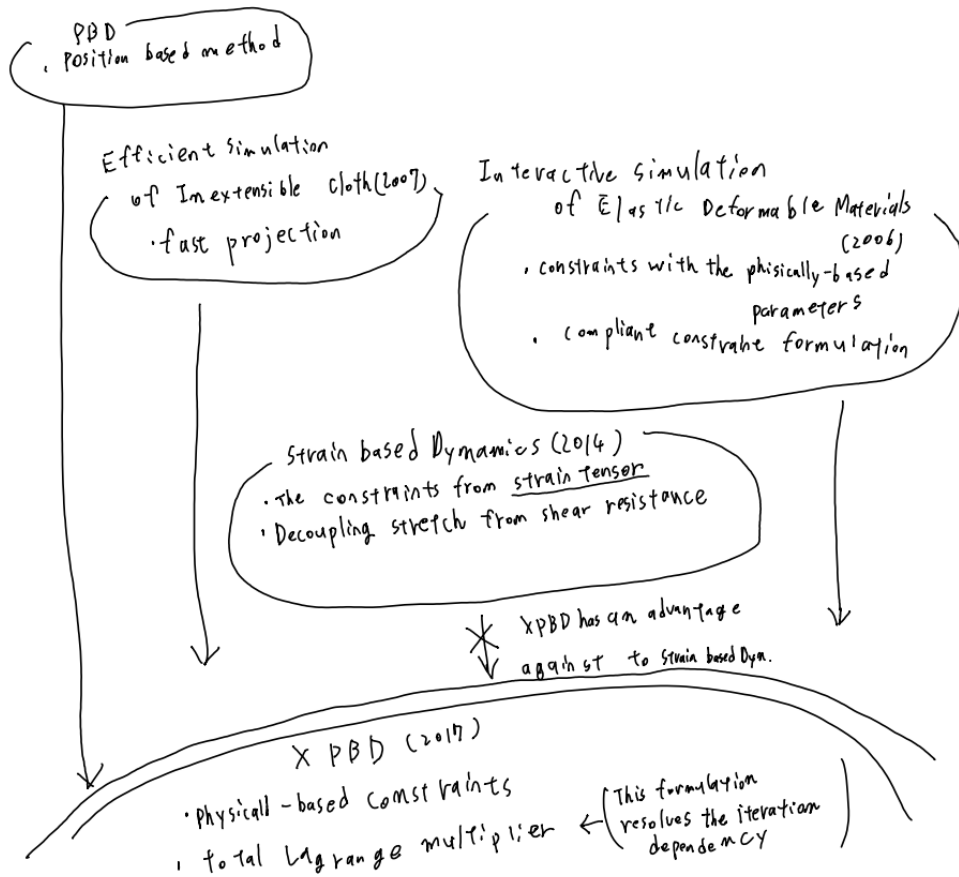 PBD
・Position based method
Efficient simulation
of Inextensible cloth(2007)
・fast projection
Interactive simulation
of Elastic Deformable Materials
(2006)
・constraints with the phisically-based
parameters
・compliant constraint formulation
Strain based Dynamics (2014)
・The constraints from strain tensor
・Decoupling stretch from shear resistance
XPBD has an advantage
against to strain based Dyn.
XPBD (2017)
・Physicall-based constraints
・total Lagrange multiplier ← (This formulation
resolves the iteration
dependency)